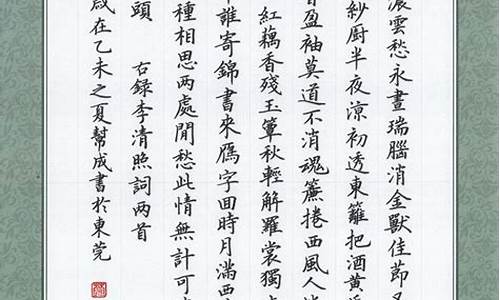 濃雲愁永晝瑞腦消金獸佳節又
紗厨半夜涼初透東籬把酒黃
盈袖莫道不消魂簾捲西風人
紅藕香殘玉簟秋輕解羅裳獨
誰寄錦書來雁字回時月滿西
種相思两處閒愁此情無計可
頭 右録李清照詞两首
歲在乙未之夏幫成書於東莞